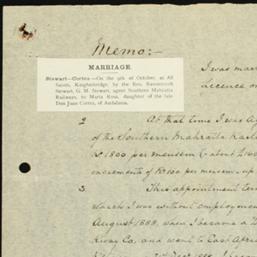 Memo:-
MARRIAGE.
Stewart—Cortes.—On the 9th of October, at All
Saints, Knightsbridge, by the Rev. Ravenscroft
Stewart, G. M. Stewart, agent Southern Mahratta
Railways, to Maria Rosa, daughter of the late
Don Juan Cortes, of Andalusia.
I was marr
licence o
2 At that time I was Ag
of the Southern Mahratta Railw
Rs 1800 per mensem (about £160
increments of Rs 100 per mensem, up
3 This appointment ter
which I was without employmen
August 1888, when I became a D
way Co. and went to East Afric